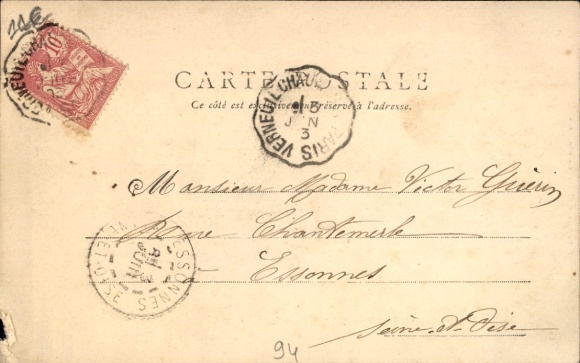 10
CARTE POSTALE
Ce côté est exclusivement réservé à l'adresse.
VERNEUIL CHAU PARIS
JN
3
Monsieur Madame Victor Guérin
Chantemerle
à Essonnes
Seine-et-Oise
ESSONNES
JUIN
94